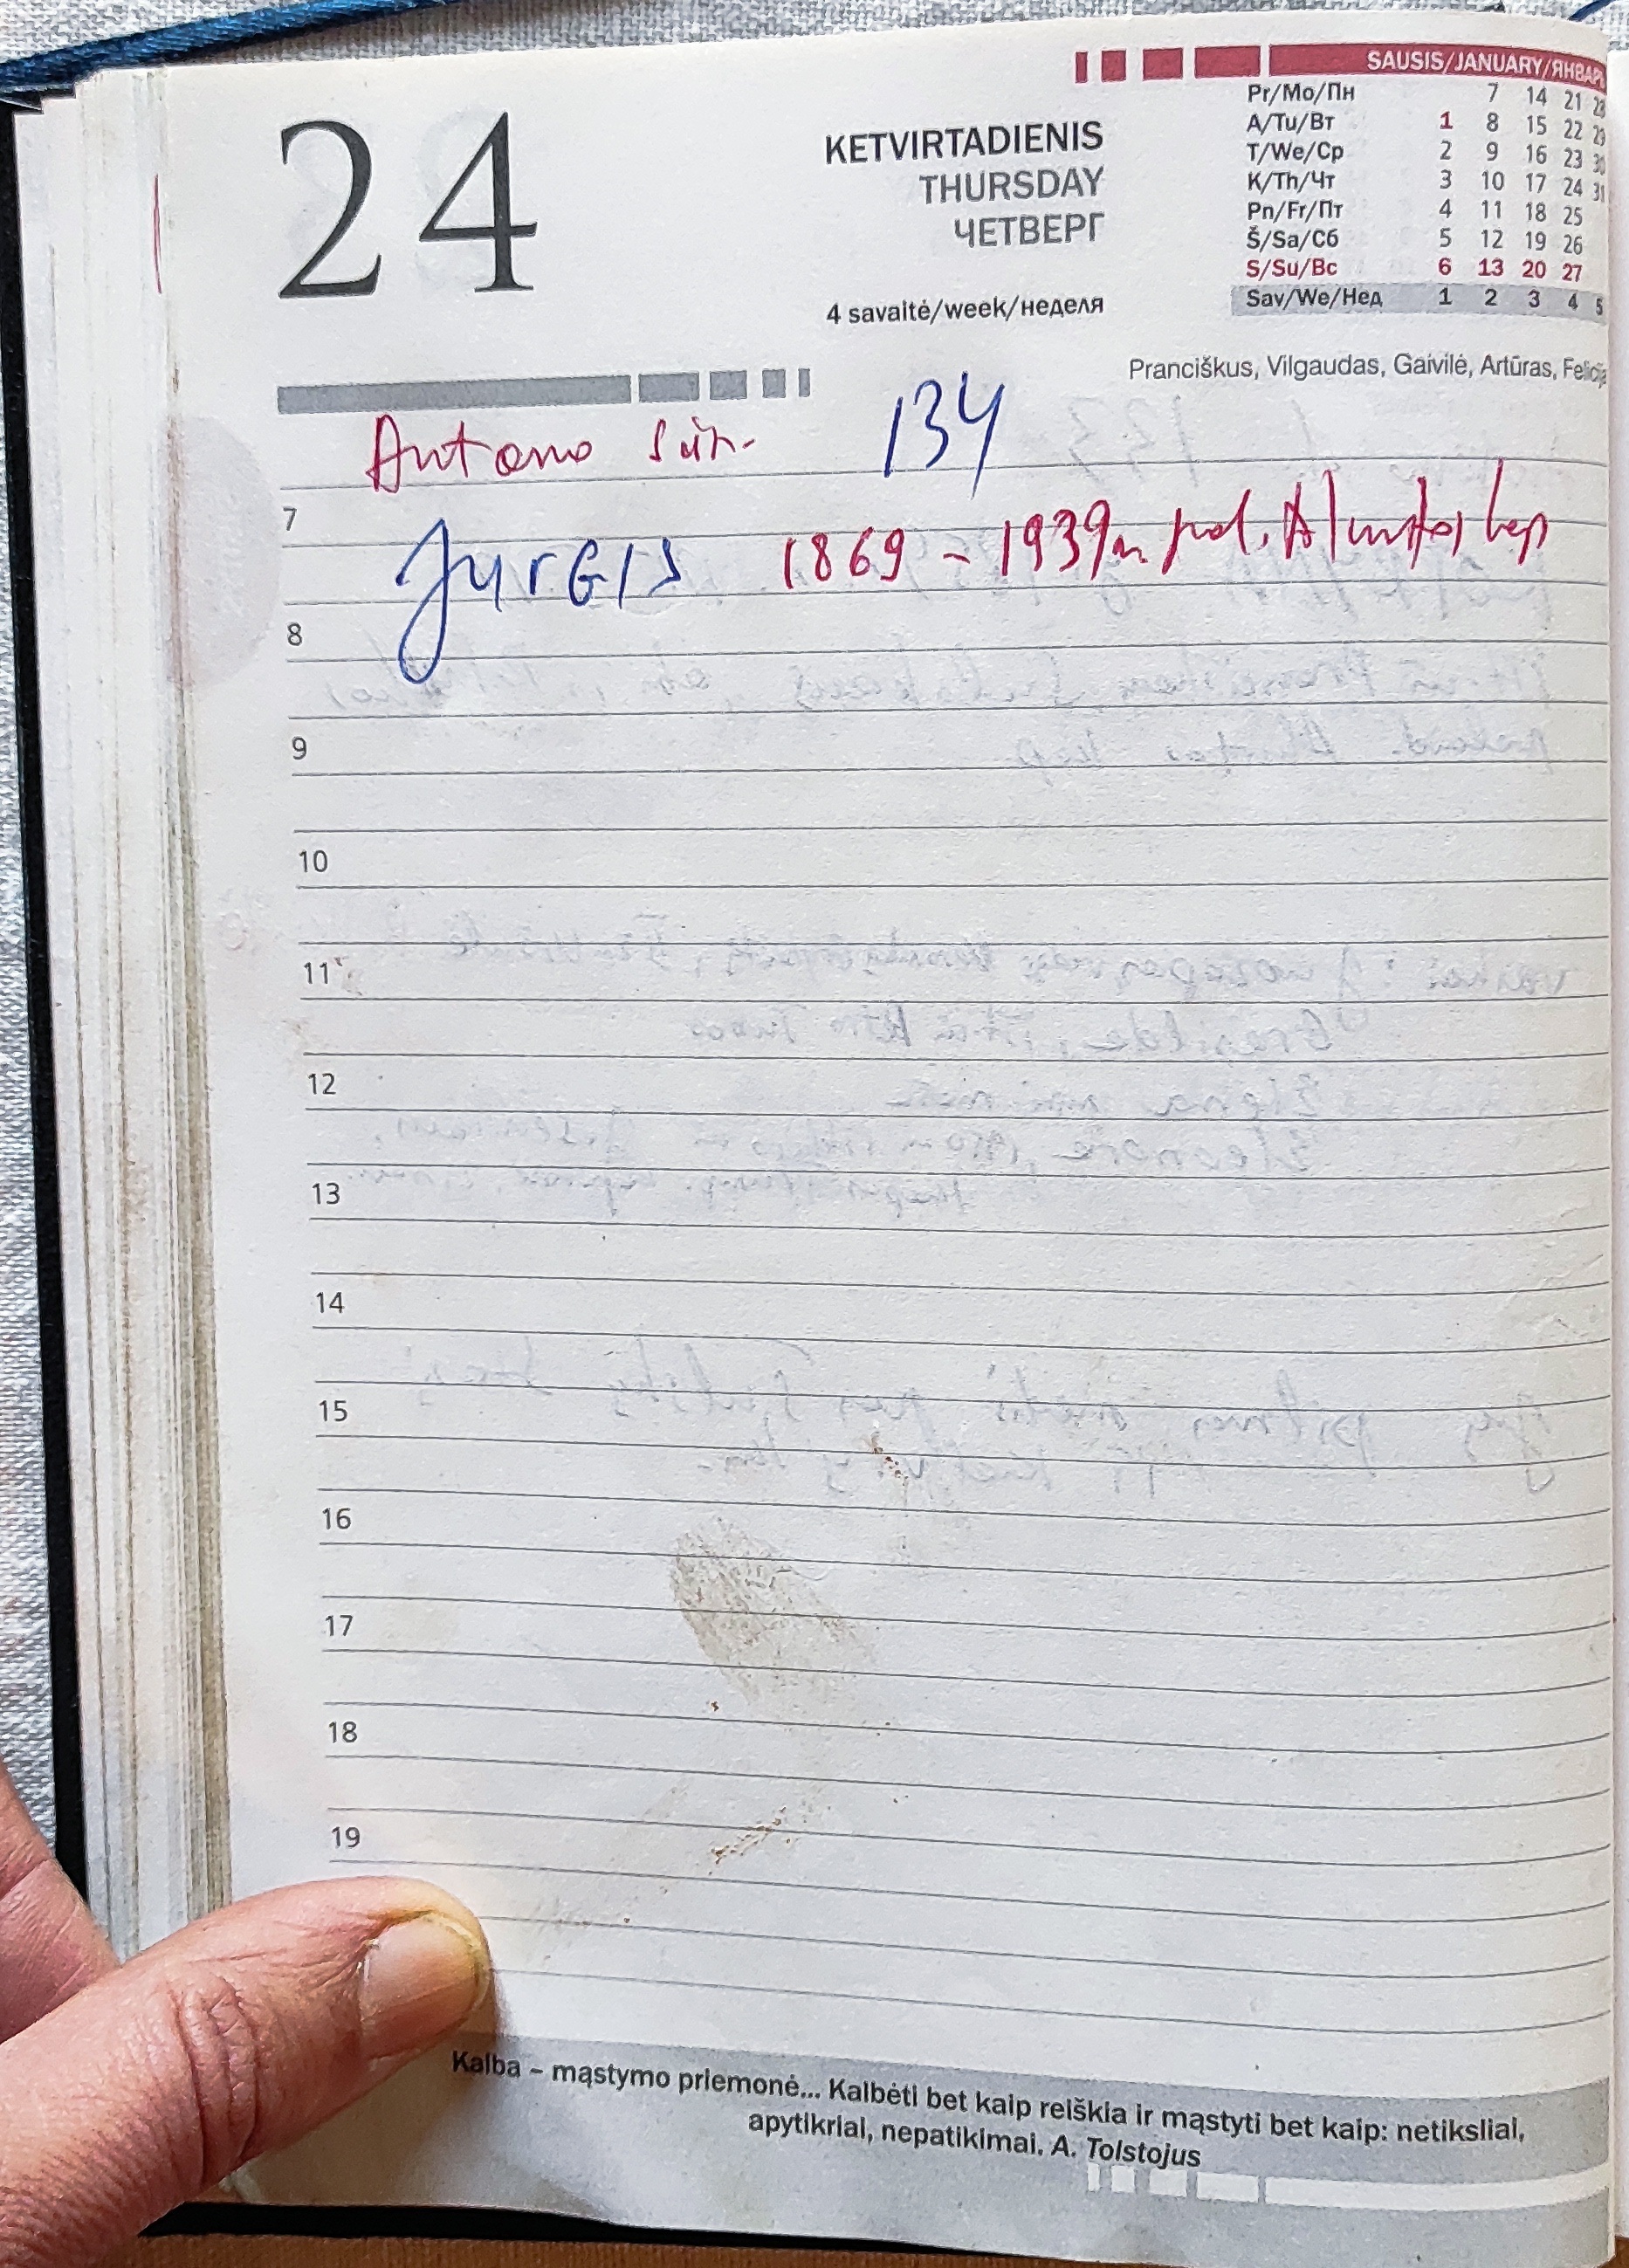 SAUSIS/JANUARY/ЯНВАРЬ
24
KETVIRTADIENIS
THURSDAY
ЧЕТВЕРГ
4 savaitė/week/неделя
Pr/Mo/Пн 7 14 21 28
A/Tu/Вт 1 8 15 22 29
T/We/Ср 2 9 16 23 30
K/Th/Чт 3 10 17 24 31
Pn/Fr/Пт 4 11 18 25
Š/Sa/Сб 5 12 19 26
S/Su/Вс 6 13 20 27
Sav/We/Нед 1 2 3 4 5
Pranciškus, Vilgaudas, Gaivilė, Artūras, Felicija
Antano sūn. 134
7
Jurgis 1869 - 1939 m pal. Aluntos kap
8
9
10
11
12
13
14
15
16
17
18
19
Kalba – mąstymo priemonė... Kalbėti bet kaip reiškia ir mąstyti bet kaip: netiksliai,
apytikriai, nepatikimai. A. Tolstojus